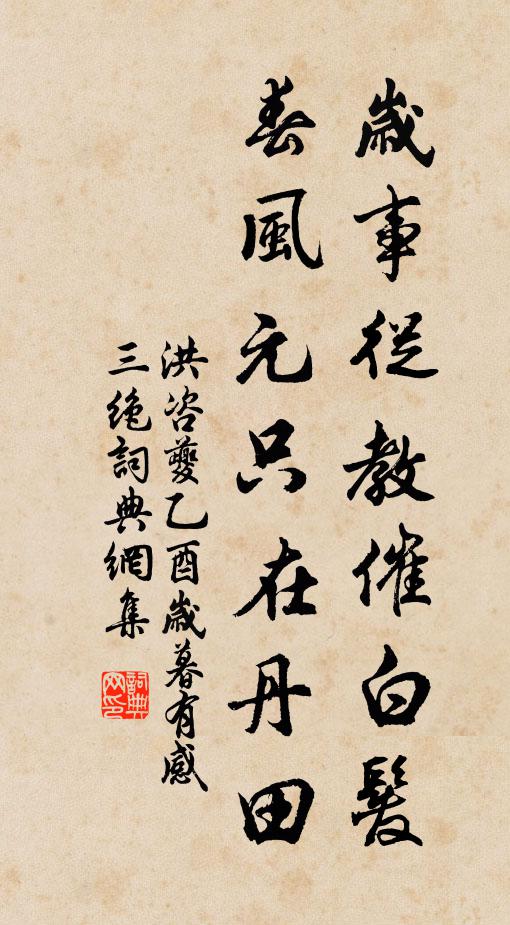 歲事從教催白髮
春風元只在丹田
洪咨夔乙酉歲暮有感
三絶詞典網集
詞典
网印